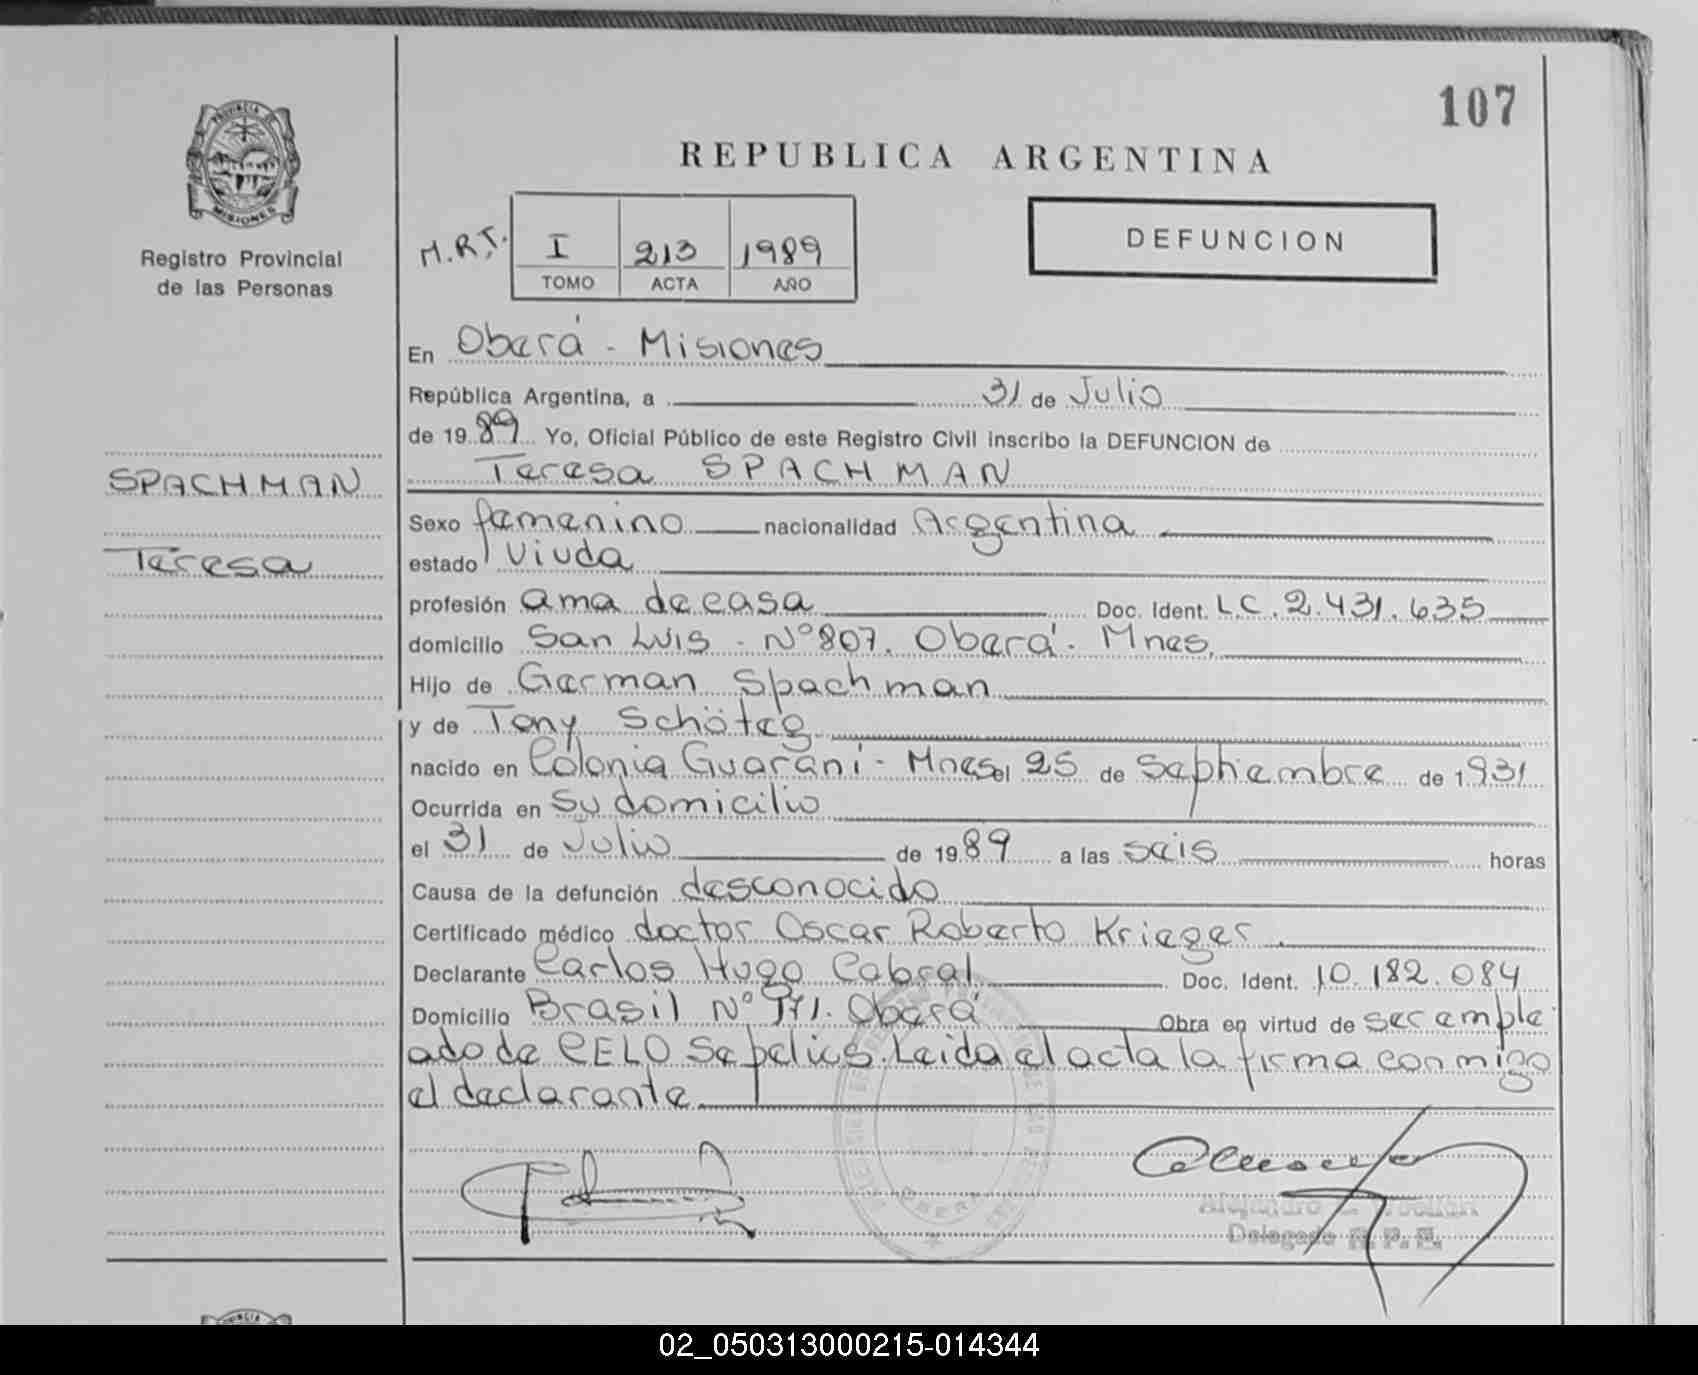 107
PROVINCIA DE
MISIONES
Registro Provincial
de las Personas
REPUBLICA ARGENTINA
M.R.T. I 213 1989
TOMO ACTA AÑO
DEFUNCION
En Oberá - Misiones
República Argentina, a 31 de Julio
de 1989 Yo, Oficial Público de este Registro Civil inscribo la DEFUNCION de
Teresa SPACHMAN
SPACHMAN
Teresa
Sexo femenino nacionalidad Argentina
estado Viuda
profesión ama de casa Doc. Ident. LC.2.431.635
domicilio San Luis - Nº 807. Oberá - Mnes.
Hijo de German Spachman
y de Tony Schöteg
nacido en Colonia Guaraní - Mnes el 25 de Septiembre de 1.931
Ocurrida en Su domicilio
el 31 de Julio de 1989 a las seis horas
Causa de la defunción desconocido
Certificado médico doctor Oscar Roberto Krieger.
Declarante Carlos Hugo Cabral Doc. Ident. 10.182.084
Domicilio Brasil Nº 971. Oberá Obra en virtud de ser emple
ado de CELO Sepelios. Leida el acta la firma conmigo
el declarante.
OBERA
Alejandro
Delegado R. P. P.
02_050313000215-014344